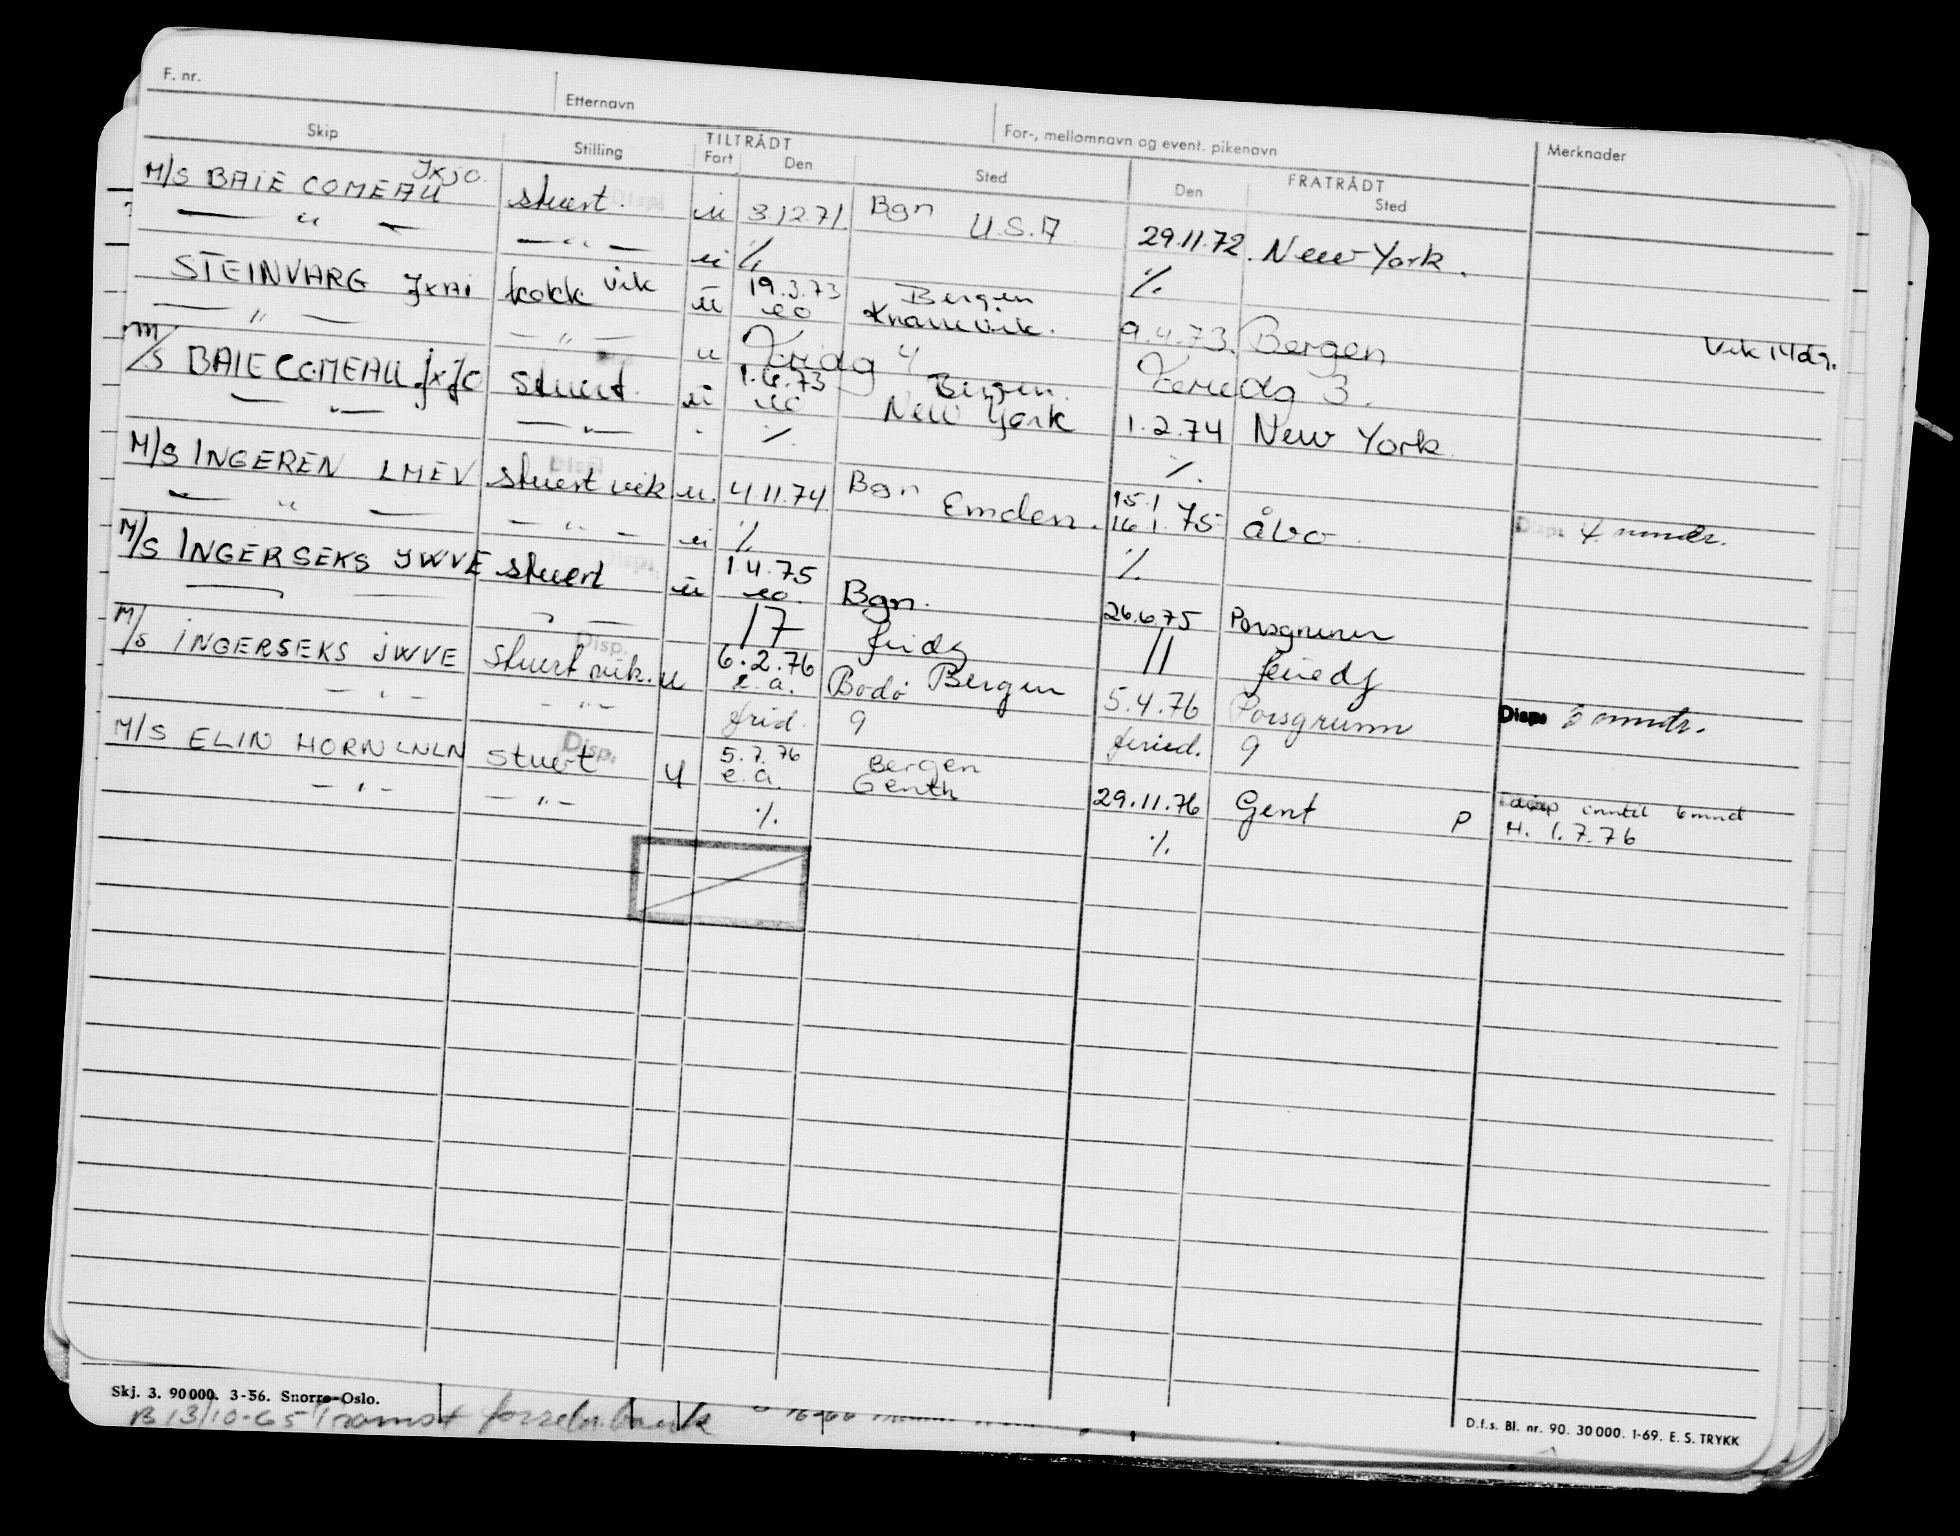 F. nr. Etternavn For-, mellomnavn og event. pikenavn Merknader
Skip Stilling TILTRÅDT Fart Den Sted FRATRÅDT Den Sted
M/S BAIE COMEAU Jxjo. stuert u 3.12.71 Bgn U.S.A 29.11.72. New York.
— " — — " — u ·/. ·/.
STEINVARG kokk vik u 19.3.73 eo Bergen 9.4.73. Bergen Vik 14 dg.
— " — — " — u Feridg 4 Feriedg 3.
M/S BAIE COMEAU JxJO stuert u 1.6.73 eo Bergen New York 1.2.74 New York
— " — — " — ·/. ·/.
M/S INGEREN LMEV stuert vik u. 4.11.74 Bgn Emden. 15.1 16.1.75 åbo. Disp. 4 mndr.
— " — — " — u ·/. ·/.
M/S INGERSEKS JWVE stuert Disp. u 1.4.75 eo. Bgn. 26.6.75 Porsgrunn
— — 17 feridg 11 feriedg
M/S INGERSEKS JWVE Stuert vik. Disp. u 6.2.76 e.a. Bodø Bergen 5.4.76 Porsgrunn Disp. 3 mndr.
— " — — " — frid. 9 feried. 9
M/S ELIN HORN LNLN Stuert Disp. u 5.7.76 e.a. Bergen Genth 29.11.76 Gent P disp inntil 6 mnd
M. 1.7.76
— " — — " — ·/. ·/.
Skj. 3. 90000. 3-56. Snorre-Oslo.
B 13/10-65
D.f.s. Bl. nr. 90. 30 000. 1-69. E. S. TRYKK